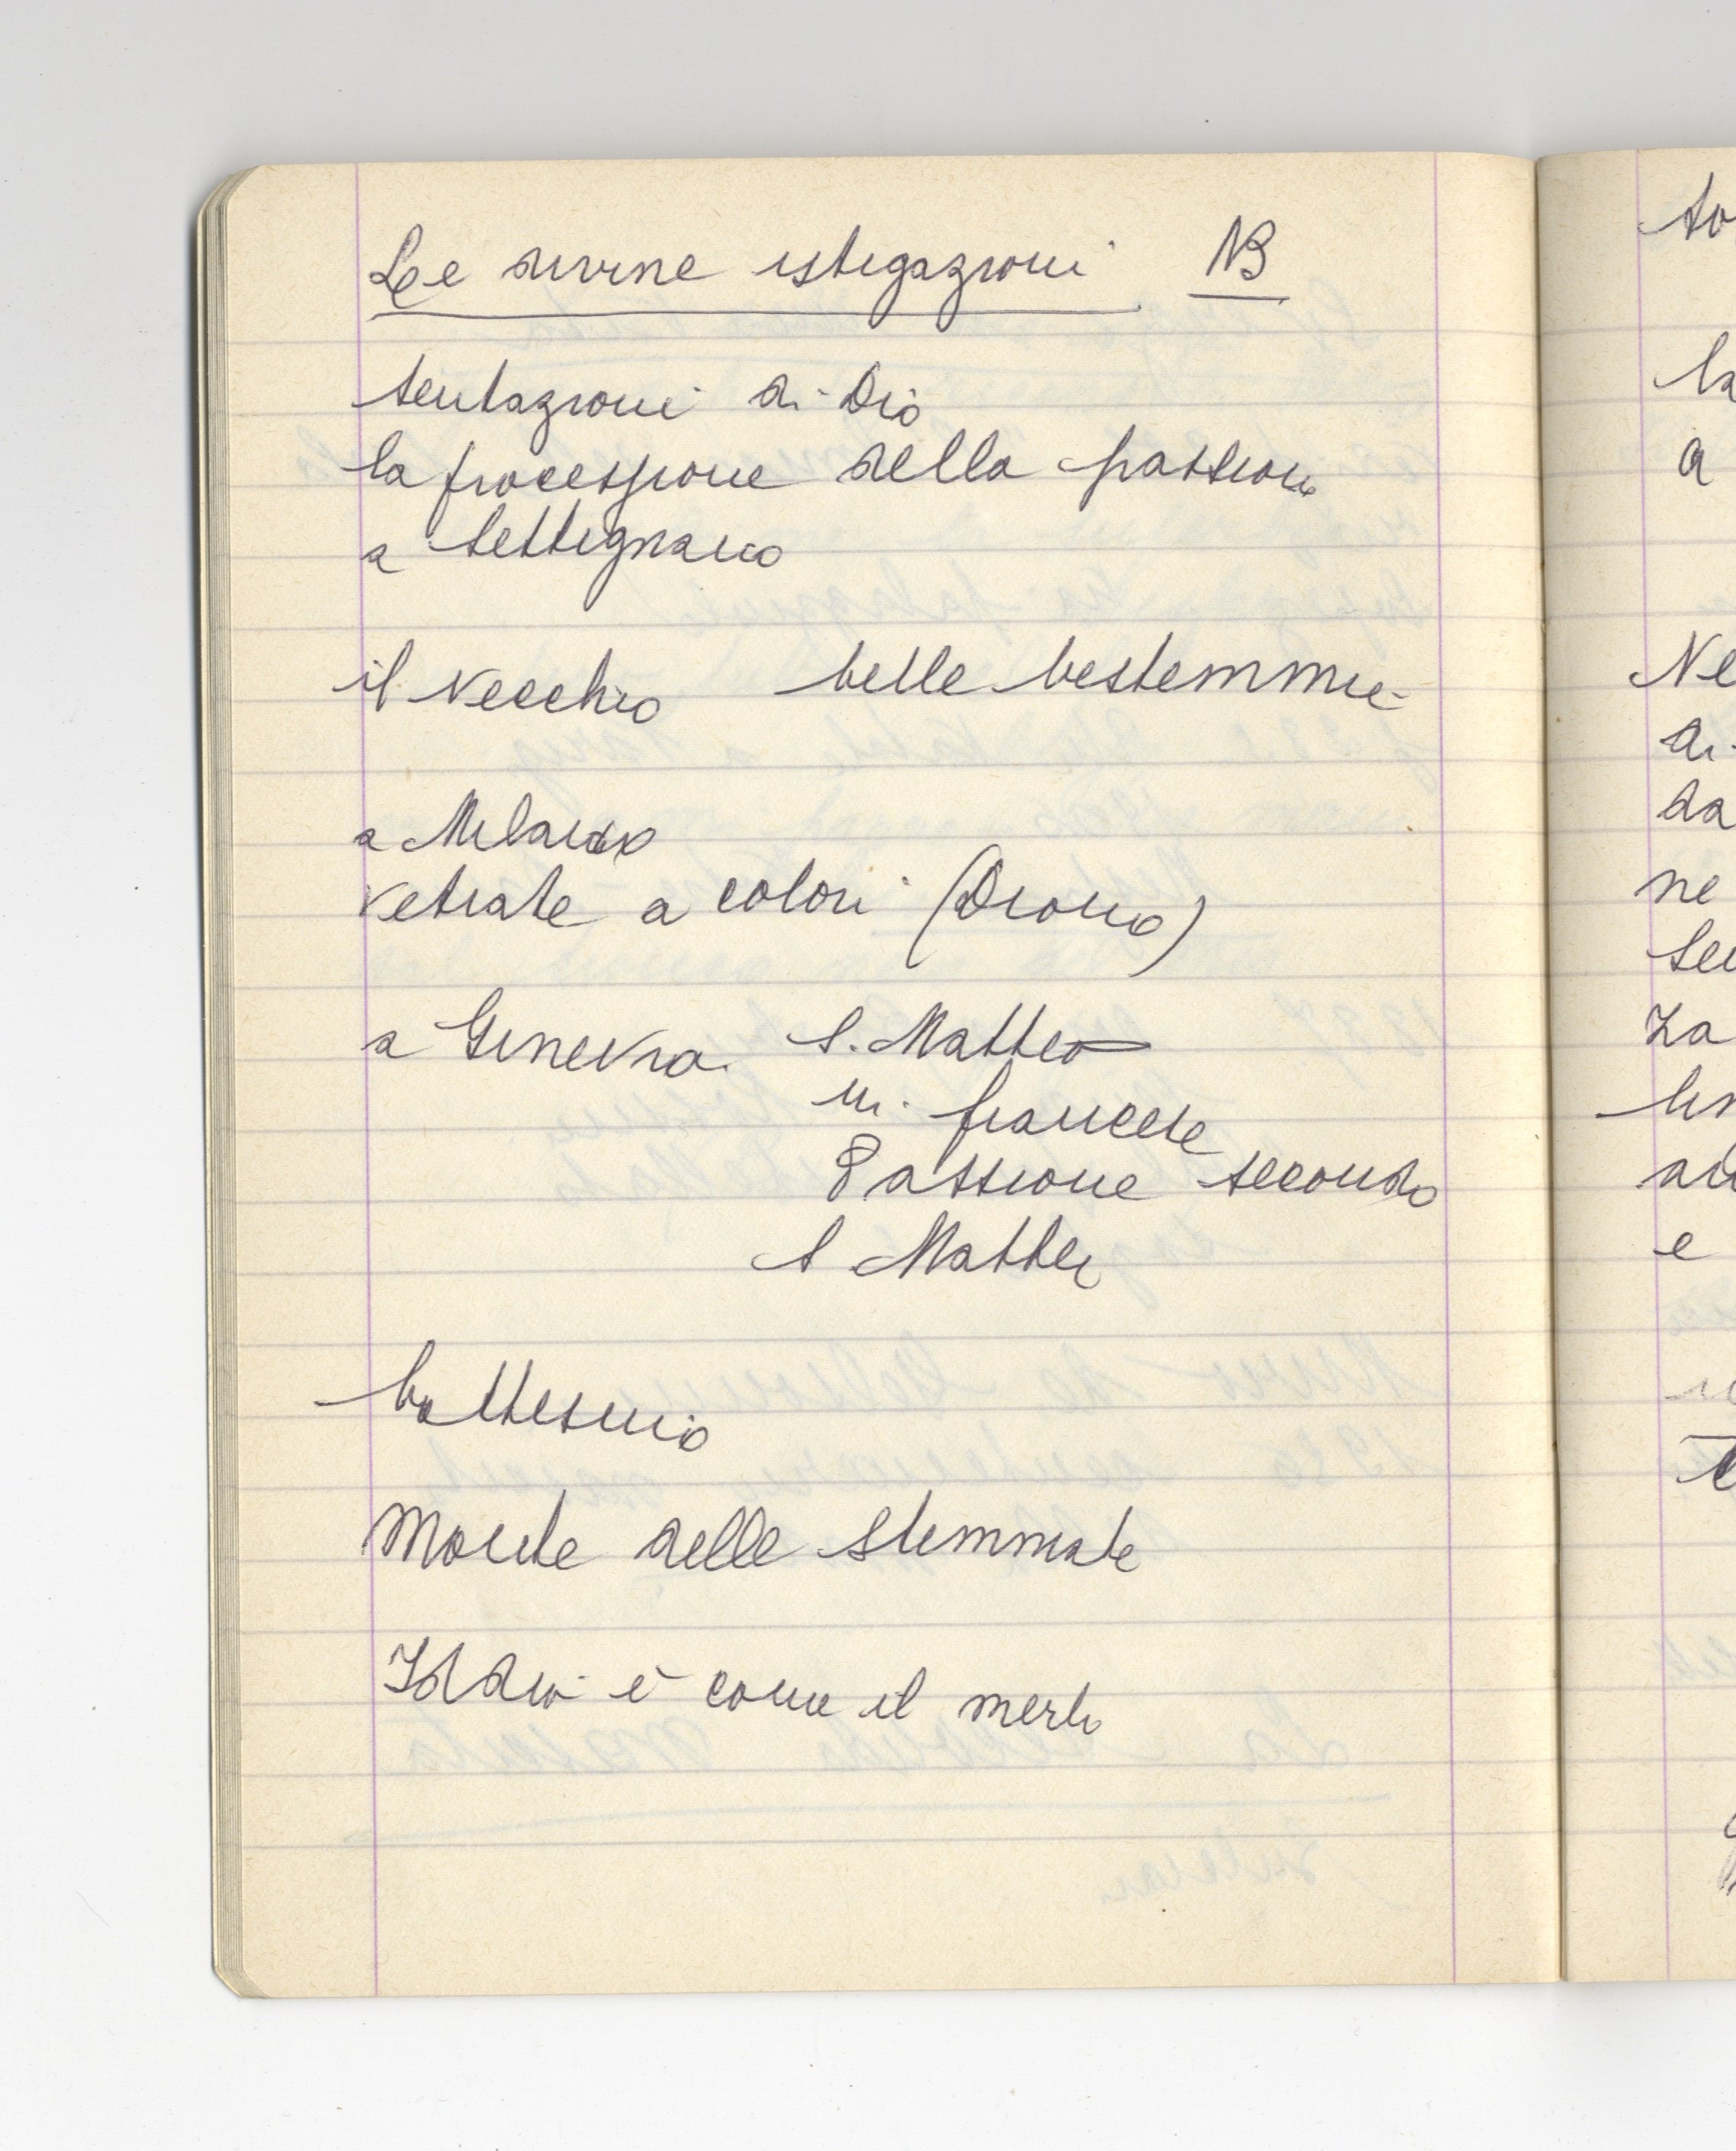 Le divine istigazioni NB
tentazioni di Dio
la processione della passione
a Settignano
il Vecchio belle bestemmie
a Milano
Vetrate a colori (Duomo)
a Ginevra S. Matteo
in francese
Passione secondo
S. Matteo
battesimo
Monte delle Stemmate
Iddio è come il merlo